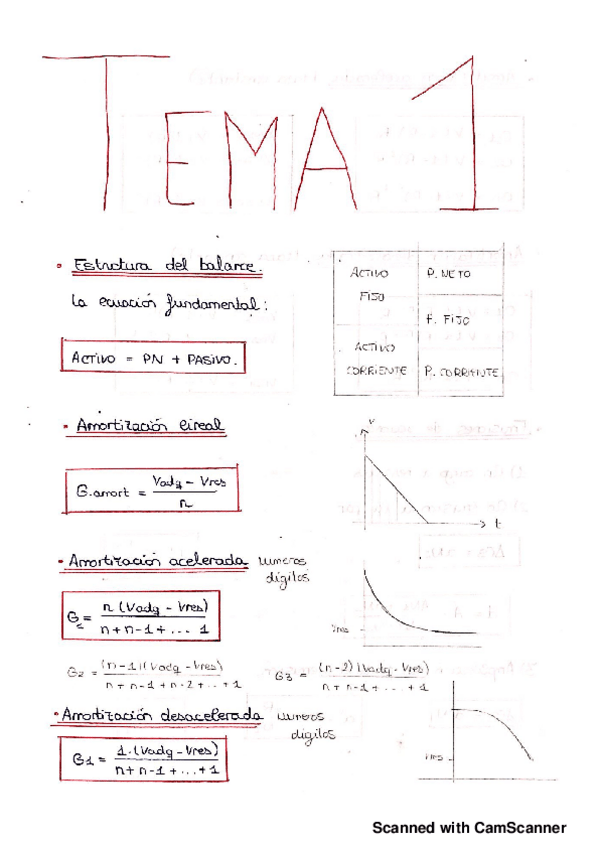 TEMA 1
• Estructura del balance.
La ecuación fundamental:
ACTIVO = PN + PASIVO.
ACTIVO
FIJO
P. NETO
P. FIJO
ACTIVO
CORRIENTE
P. CORRIENTE
• Amortización lineal
G.amort = Vadq - Vres / n
V
t
• Amortización acelerada números
dígitos
G1 = n (Vadq - Vres) / n + n-1 + ... 1
Vres
G2 = (n-1)(Vadq - Vres) / n + n-1 + n-2 + ... + 1
G3 = (n-2)(Vadq - Vres) / n + n-1 + ... + 1
• Amortización desacelerada números
dígitos
G1 = 1·(Vadq - Vres) / n + n-1 + ... + 1
Vres
Scanned with CamScanner